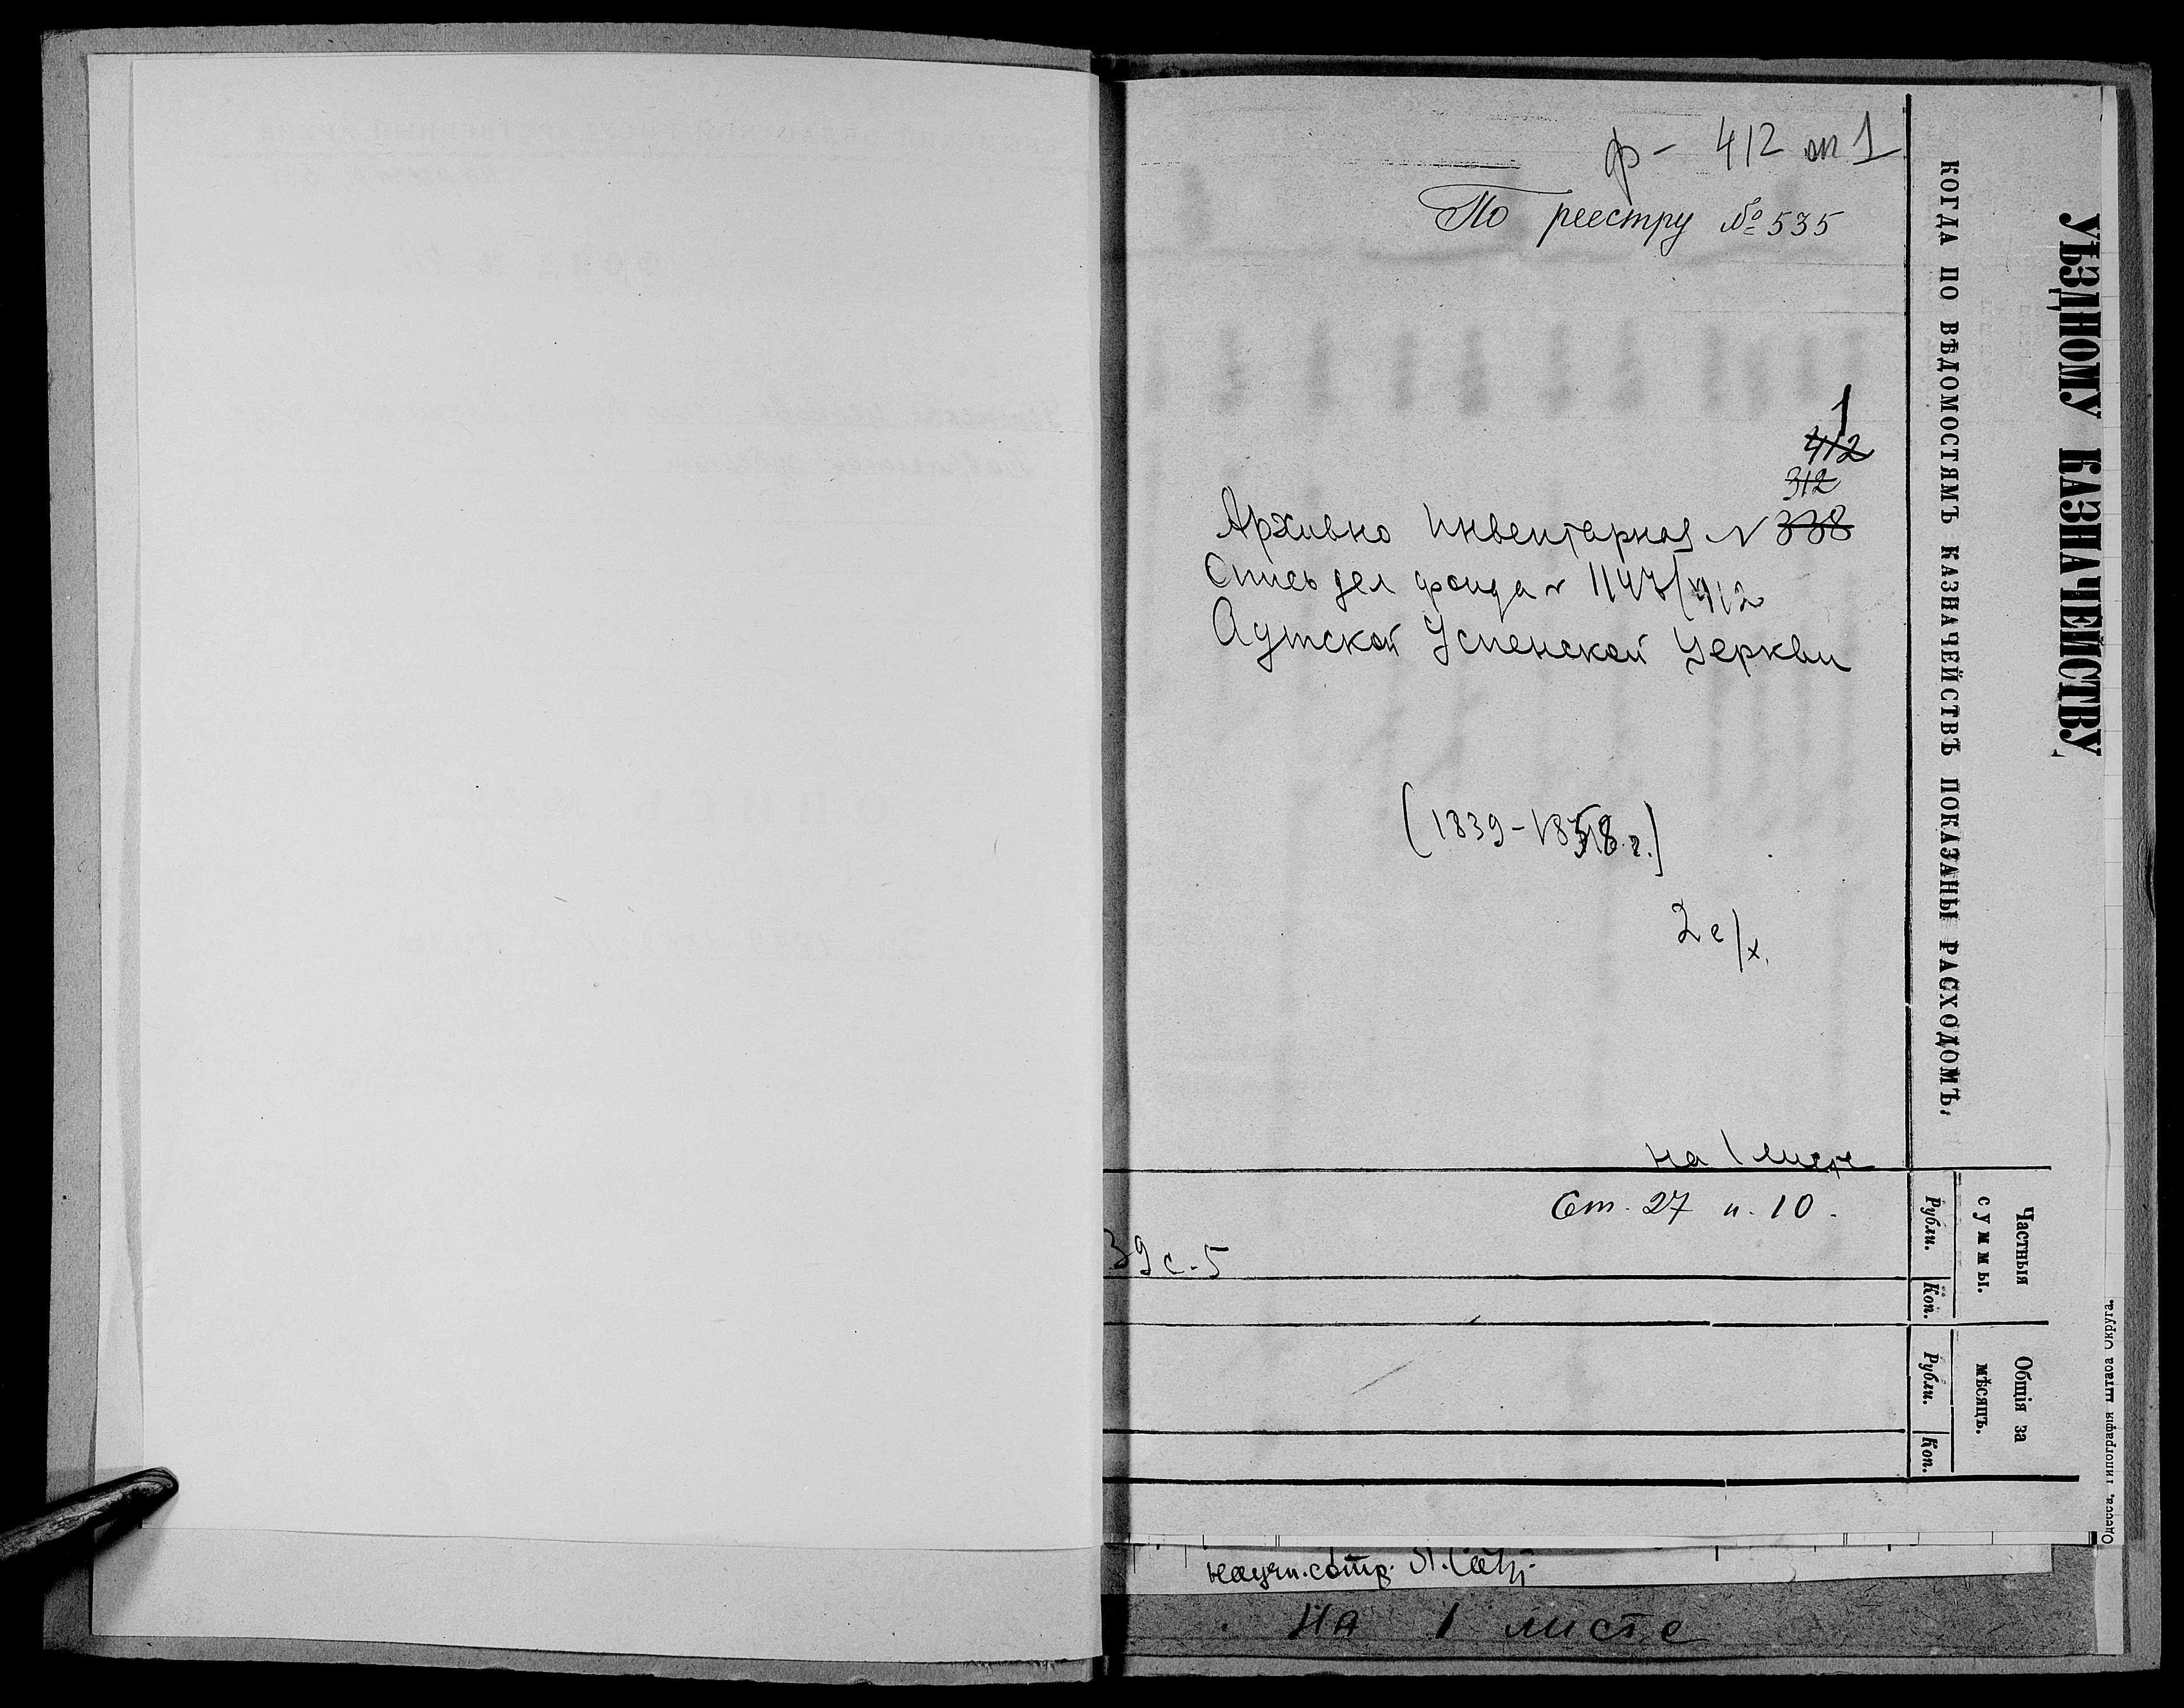 ф- 412 оп 1
По реестру № 535
1
412
312
Архивно Инвентарная N 338
Опись дел фонда N 1147/412
Аутской Успенской Церкви
(1839-1858 г.)
2 е/х.
на 1 листе
Ст. 27 п. 10.
39 с. 5
УѢЗДНОМУ КАЗНАЧЕЙСТВУ
КОГДА ПО ВѢДОМОСТЯМЪ КАЗНАЧЕЙСТВЪ ПОКАЗАНЫ РАСХОДОМЪ.
Частныя
суммы.
Рубли.
Коп.
Общія за
мѣсяцъ.
Рубли.
Коп.
Одесса. Типографія Штаба Округа.
научн. сотр.
НА 1 листе